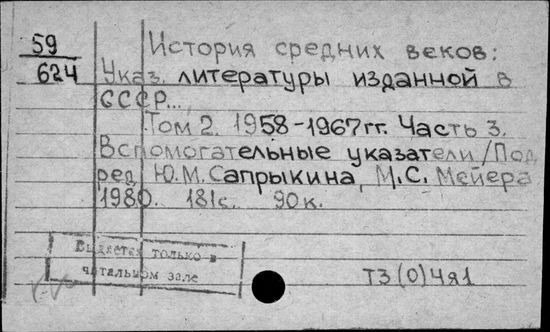 59
624
История средних веков:
Указ. литературы изданной в
СССР...
Том 2. 1958-1967гг. Часть 3.
Вспомогательные указатели/Под
ред. Ю.М.Сапрыкина, М.С. Мейера
1980. 181с. 90к.
Выдается только в
читальном зале
Т3(0)4я1